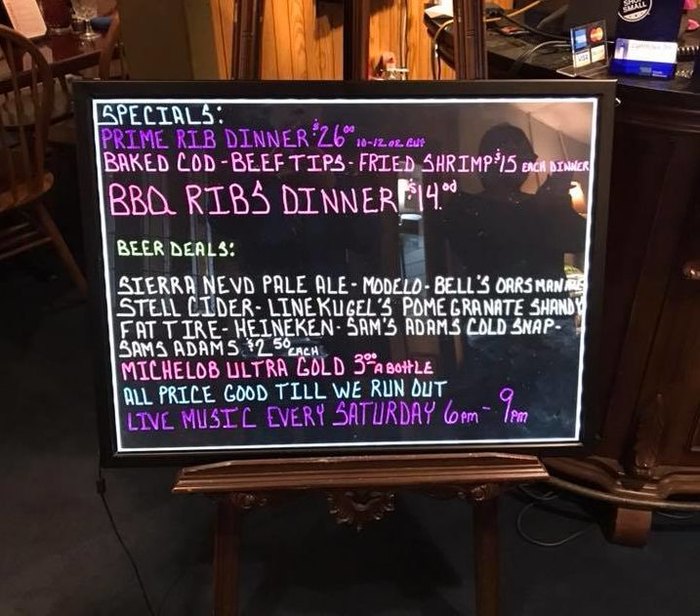 SPECIALS:
PRIME RIB DINNER $26.00 10-12 oz. cut
BAKED COD - BEEF TIPS - FRIED SHRIMP $15 EACH DINNER
BBQ RIBS DINNER $14.00
BEER DEALS:
SIERRA NEVD PALE ALE - MODELO - BELL'S OARSMAN ALE
STELL CIDER - LINEKUGEL'S POMEGRANATE SHANDY
FAT TIRE - HEINEKEN - SAM'S ADAMS COLD SNAP -
SAMS ADAMS $2.50 EACH
MICHELOB ULTRA GOLD 3.00 A BOTTLE
ALL PRICE GOOD TILL WE RUN OUT
LIVE MUSIC EVERY SATURDAY 6pm - 9pm
SMALL
VISA